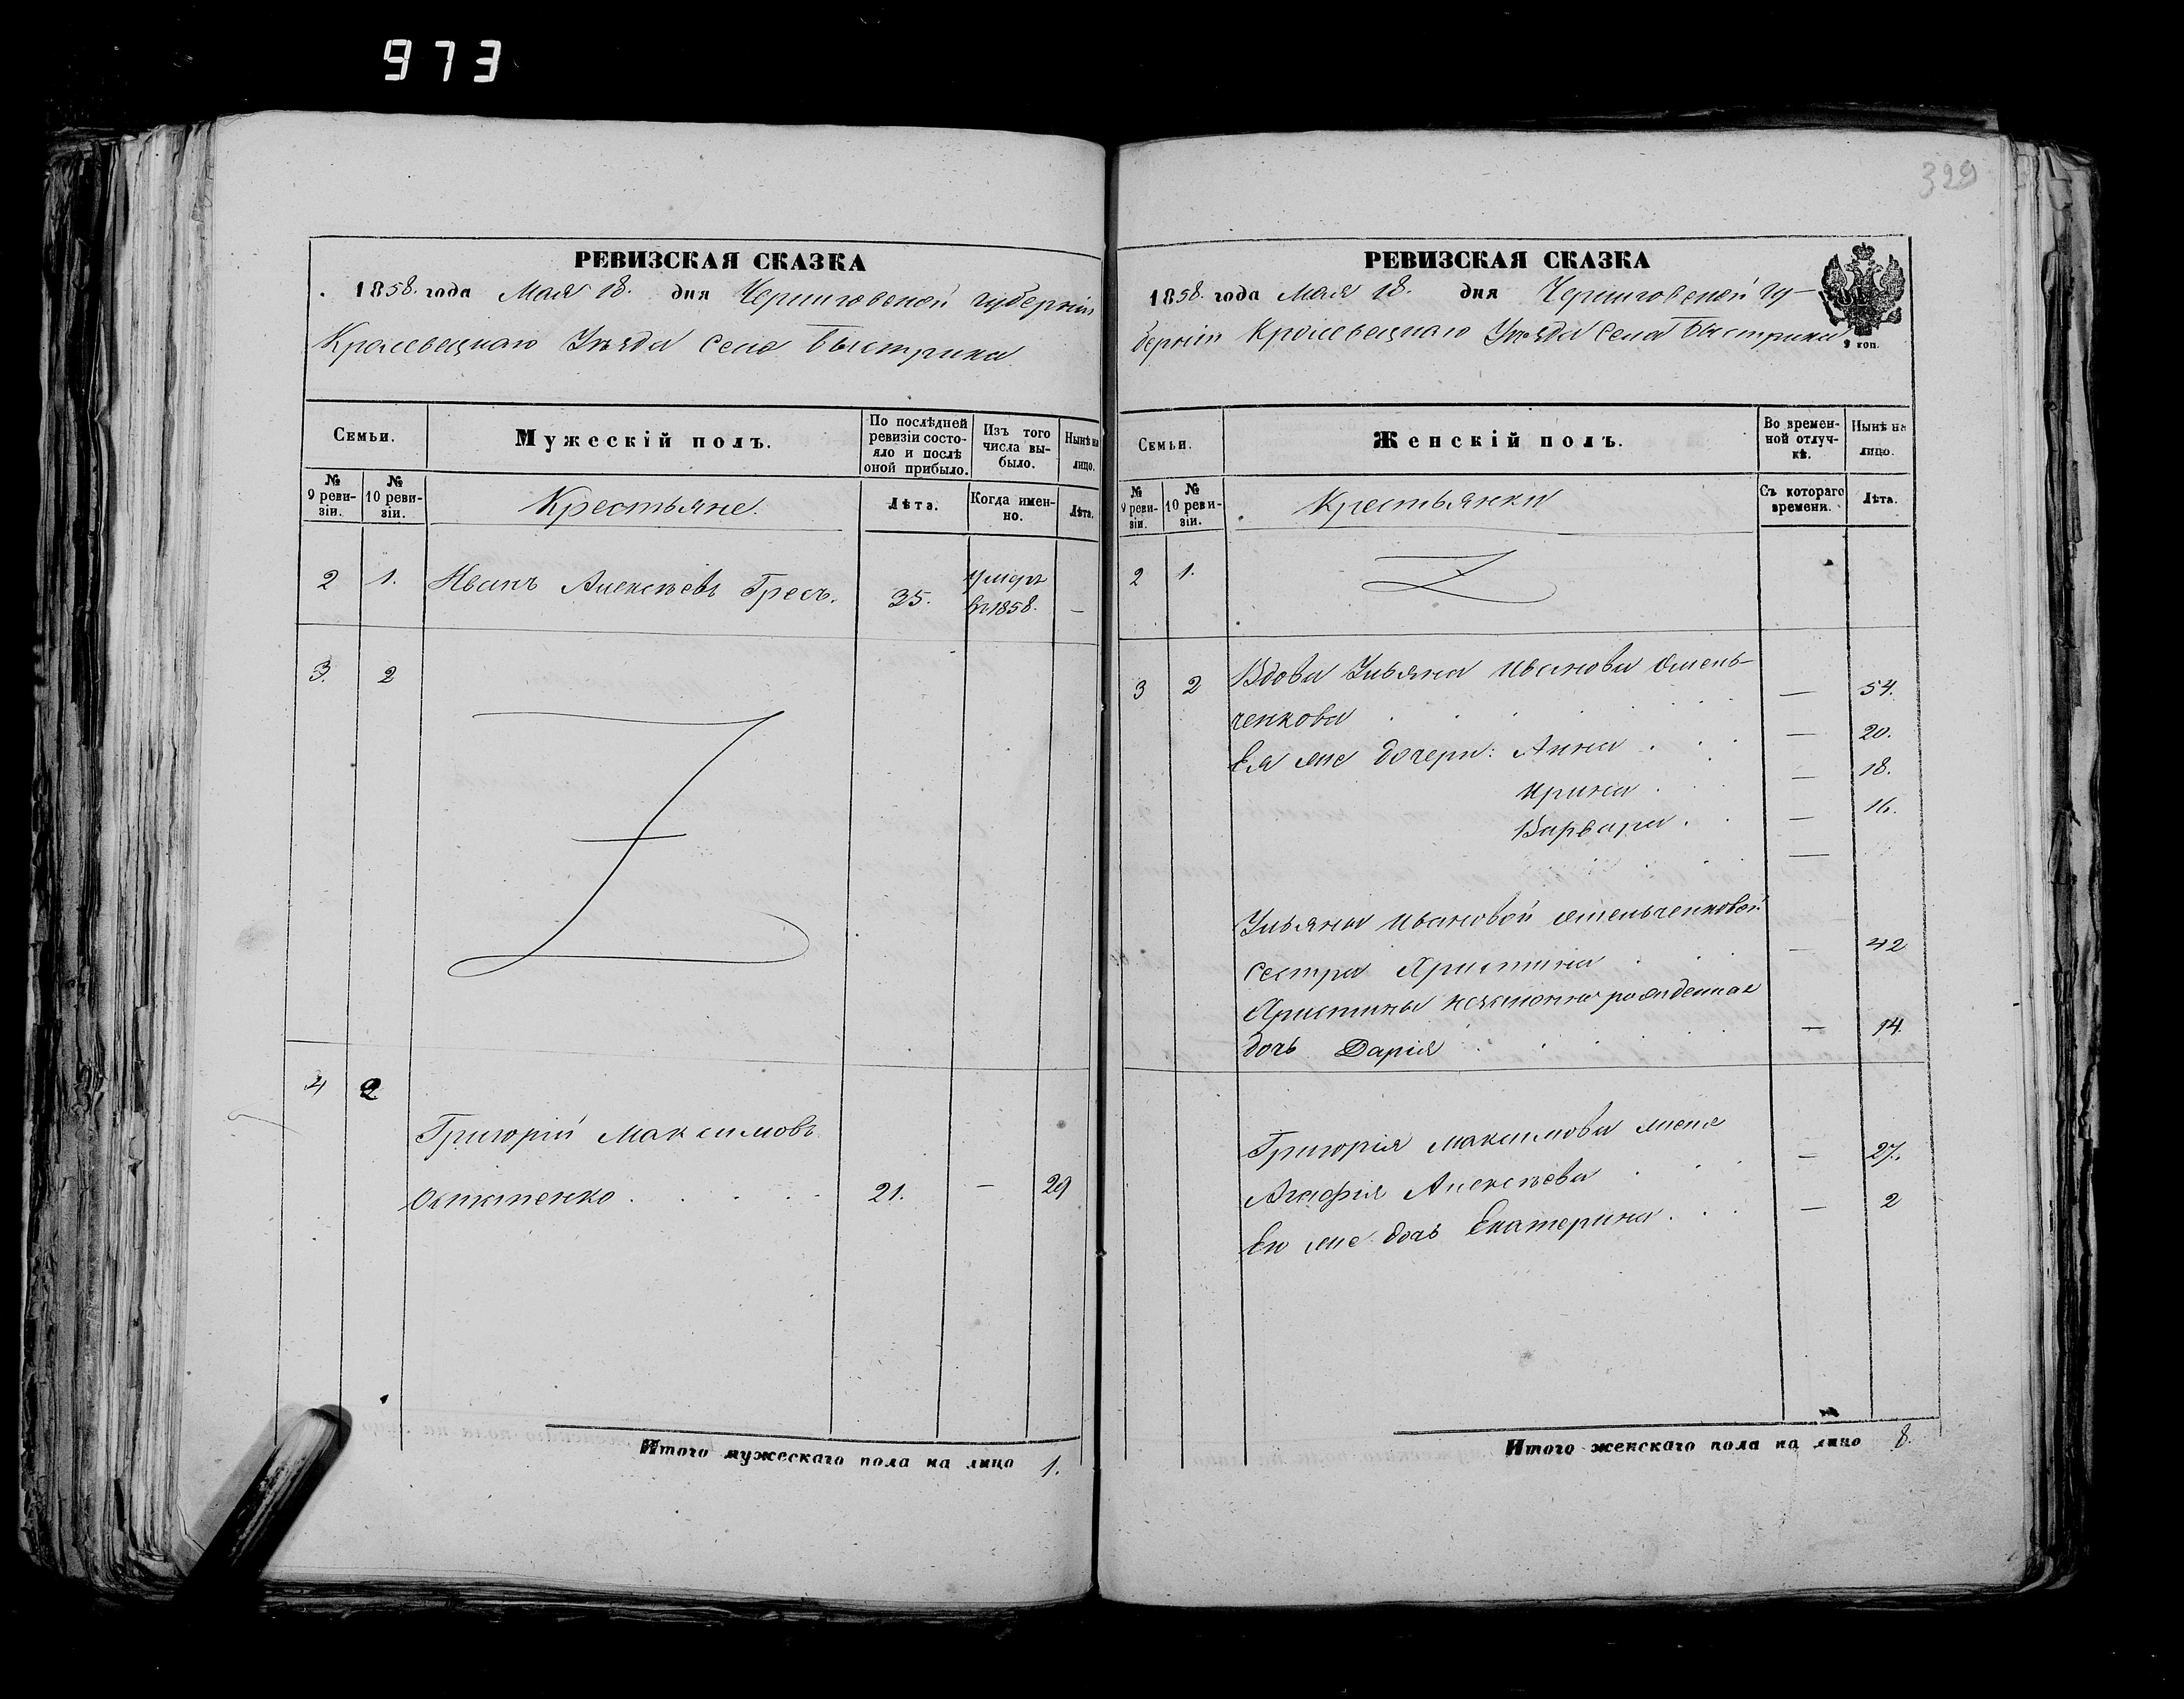 973
РЕВИЗСКАЯ СКАЗКА
1858. года Мая 18. дня Черниговской губерніи
Кролевецкаго Уѣзда Села Быстрика
Семьи.
Мужескій полъ.
По послѣдней ревизіи состояло и послѣ оной прибыло.
Изъ того числа выбыло.
Нынѣ на лицо.
№ 9 ревизіи.
№ 10 ревизіи.
Крестьяне.
Лѣта.
Когда именно.
Лѣта.
2 1. Иванъ Алексѣевъ Гресь. 35. умеръ въ 1858. —
3. 2
4 2
Григорій Максимовъ
21. — 29
Итого мужескаго пола на лицо 1.
329
РЕВИЗСКАЯ СКАЗКА
1858. года Мая 18. дня Черниговской гу-
берніи Кролевецкаго Уѣзда Села Быстрика
9 коп.
Семьи.
Женскій полъ.
Во временной отлучкѣ.
Нынѣ на лицо.
№ 9 ревизіи.
№ 10 ревизіи.
Крестьянки
Съ котораго времени.
Лѣта.
2 1.
3 2 Вдова Ульяна Иванова Омель-
ченкова — 54.
Ея же дочери: Анна — 20.
Ирина — 18.
Варвара — 16.
—
Ульяны Ивановой Омельченковой
сестра Христина — 42
Христины незаконнорожденная
дочь Дарія — 14.
Григорія Максимова жена
Агафія Алексѣева — 27.
Его же дочь Екатерина — 2
Итого женскаго пола на лицо 8.